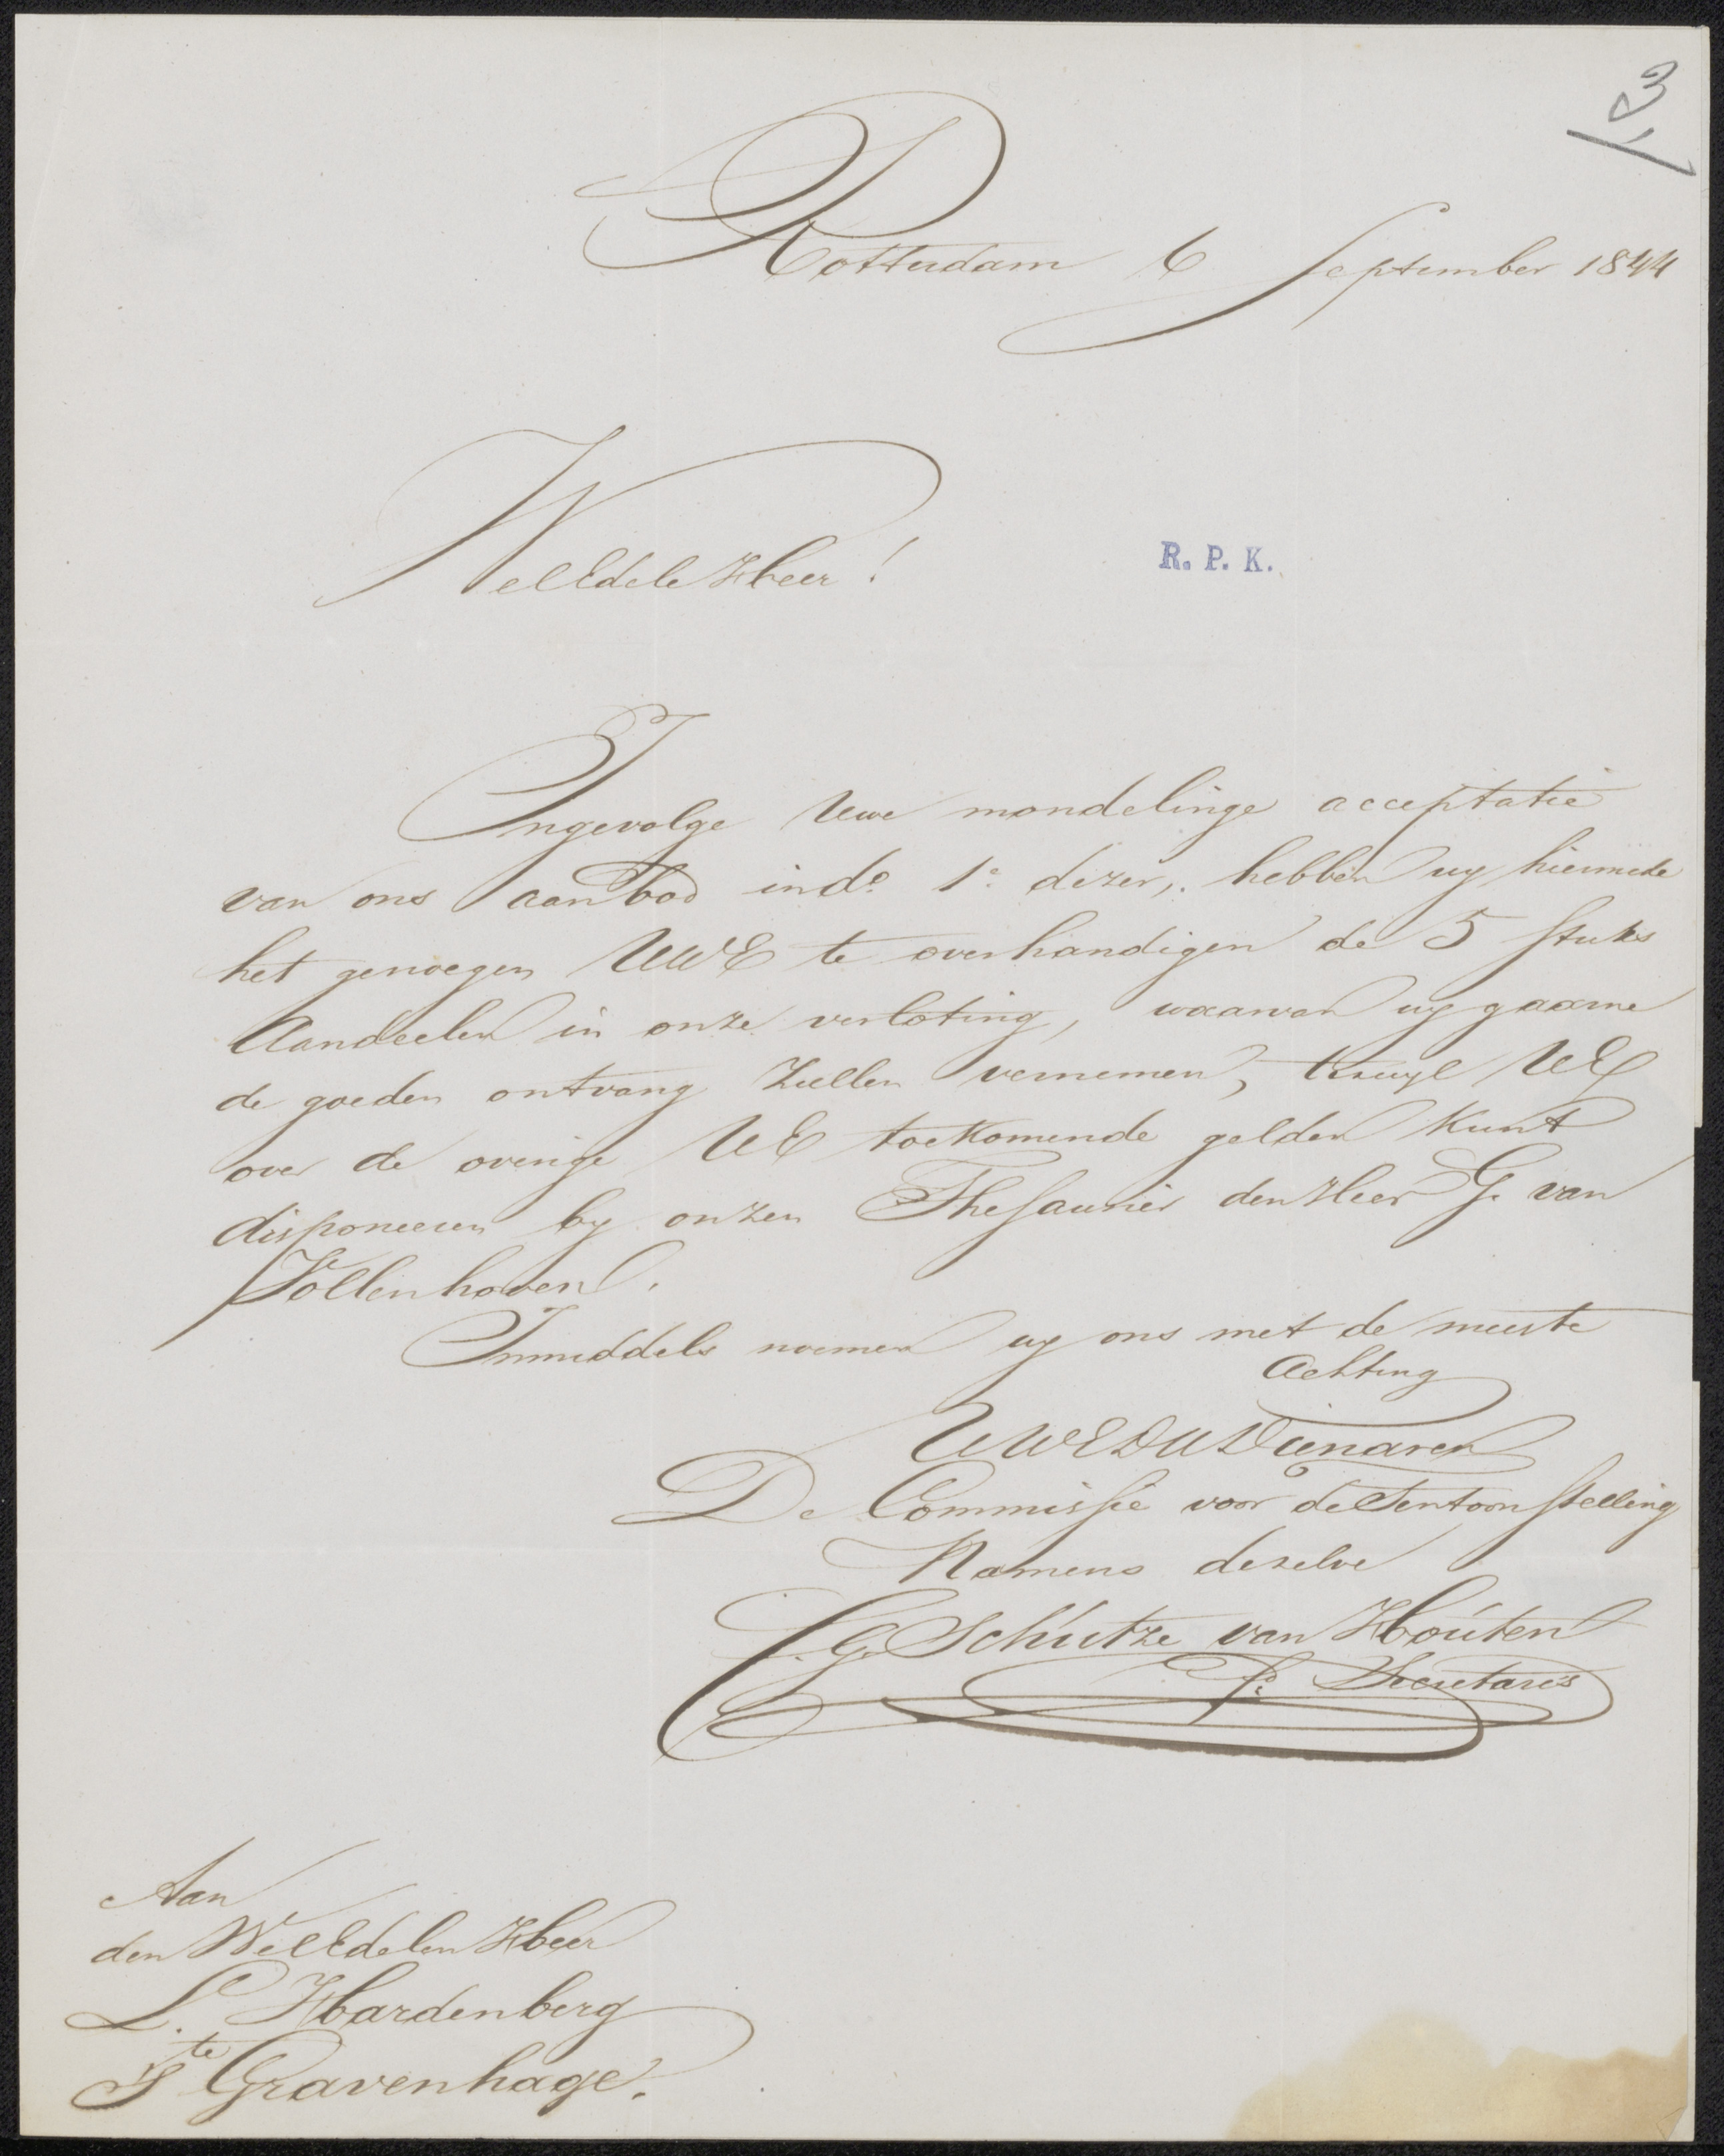 Rotterdam 6 September 1844
WelEdele Heer!
R. P. K.
Ingevolge Uwe mondelinge acceptatie
van ons aanbod in do 1e dezer, hebben wy hiermede
het genoegen UWE te overhandigen de 5 stuks
Aandeelen in onze verloting, waarvan wy gaarne
de goeden ontvang zullen vernemen, terwyl UE
over de overige UE toekomende gelden kunt
disponeeren by onzen Thesaurier den Heer G. van
Vollenhoven.
Inmiddels noemen wy ons met de meeste
Achting
UWEDW Dienaren
De Commissie voor de Tentoonstelling
Namens dezelve
G. Schutze van Houten
Secretaris
Aan
den WelEdelen Heer
L. Hardenberg
te
S Gravenhage.